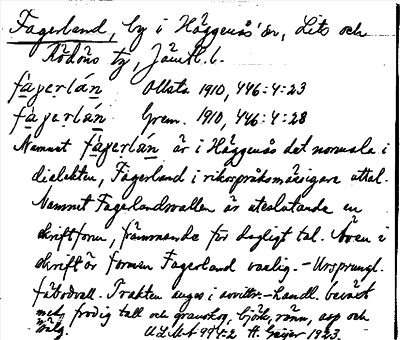 Fagerland, by i Häggenås sn, Lits och
Rödöns tg, Jämtl. l.
fàgerlán Ollsta 1910, 446:4:23
fàgerlán Gren. 1910, 446:4:28
Namnet fàgerlán är i Häggenås det normala i
dialekten, Fagerland i riksspråksmässigare uttal.
Namnet Fagerlandsvallen är uteslutande en
skriftform, främmande för dagligt tal. Även i
skrift är formen Fagerland vanlig. – Ursprungl.
fäbodvall. Trakten anges i avvittr.-handl. bevuxt
med frodig tall och granskog, björk, rönn, asp och
sälg. ULMA 994:2 H. Geijer 1923.